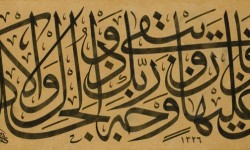 عليها فان ويبقى وجه ربك ذو الجلال والا
١٣٢٦